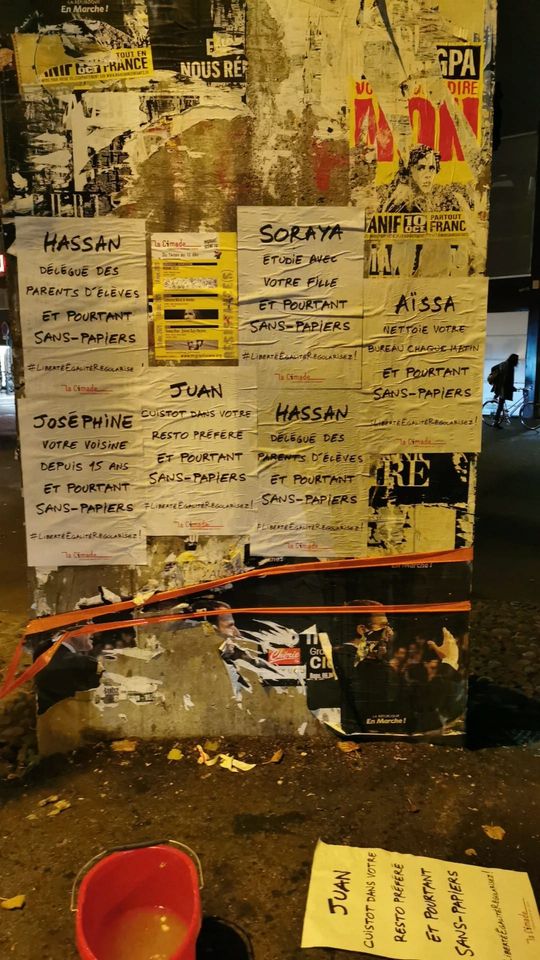 En Marche !
TOUT EN
FRANCE
NOUS RÉ
GPA
MON
MANIF 10 OCT PARTOUT
FRANC
HASSAN
DÉLÉGUÉ DES
PARENTS D'ÉLÈVES
ET POURTANT
SANS-PAPIERS
#LIBERTÉÉGALITÉRÉGULARISE
la Cimade
la Cimade
SORAYA
ETUDIE AVEC
VOTRE FILLE
ET POURTANT
SANS-PAPIERS
#LIBERTÉÉGALITÉRÉGULARISEZ!
la Cimade
AÏSSA
NETTOIE VOTRE
BUREAU CHAQUE MATIN
ET POURTANT
SANS-PAPIERS
#LIBERTÉÉGALITÉRÉGULARISEZ!
la Cimade
JOSÉPHINE
VOTRE VOISINE
DEPUIS 15 ANS
ET POURTANT
SANS-PAPIERS
#LIBERTÉÉGALITÉRÉGULARISEZ!
la Cimade
JUAN
CUISTOT DANS VOTRE
RESTO PRÉFÉRÉ
ET POURTANT
SANS-PAPIERS
#LIBERTÉÉGALITÉRÉGULARISEZ!
la Cimade
HASSAN
DÉLÉGUÉ DES
PARENTS D'ÉLÈVES
ET POURTANT
SANS-PAPIERS
#LIBERTÉÉGALITÉRÉGULARISEZ!
la Cimade
RE
En Marche !
Chérie
LA RÉPUBLIQUE
En Marche !
JUAN
CUISTOT DANS VOTRE
RESTO PRÉFÉRÉ
ET POURTANT
SANS-PAPIERS
#LIBERTÉÉGALITÉRÉGULARISEZ!
la Cimade